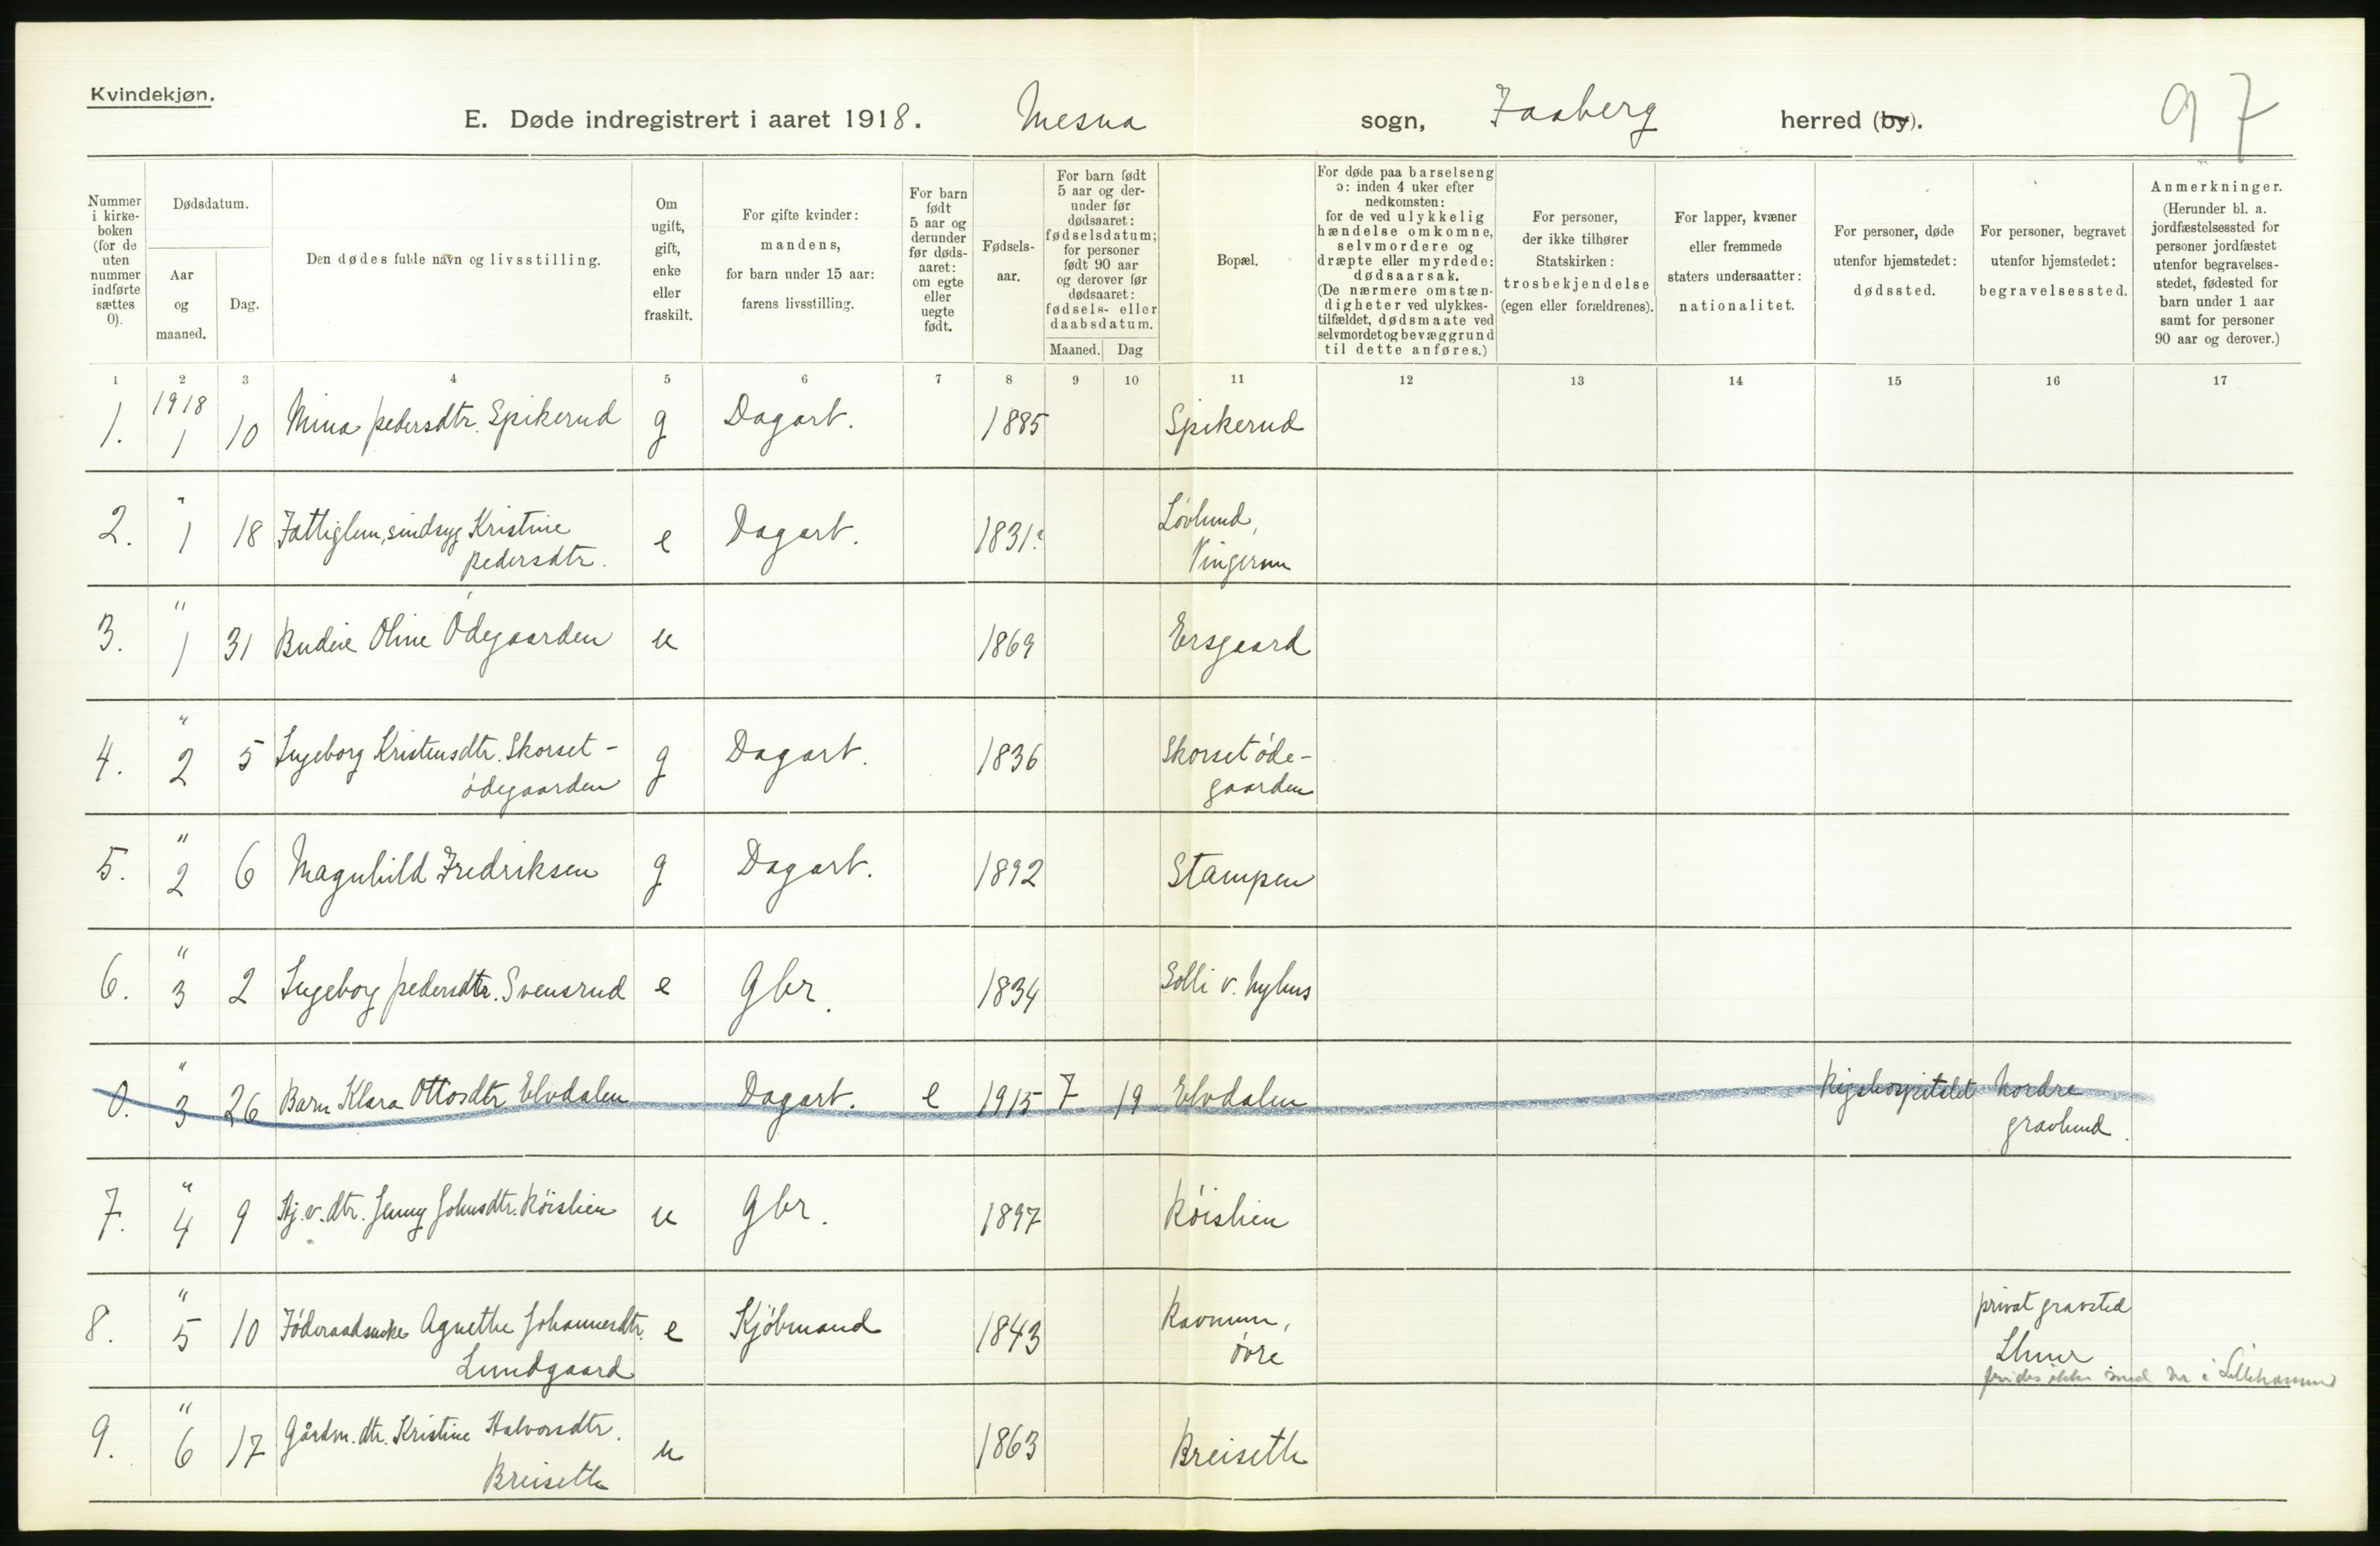 Kvindekjøn.
E. Døde indregistrert i aaret 1918. Mesna sogn, Faaberg herred (by). 97
Nummer i kirke-boken (for de uten nummer indførte sættes 0).
Dødsdatum.
Aar og maaned.
Dag.
Den dødes fulde navn og livsstilling.
Om ugift, gift, enke eller fraskilt.
For gifte kvinder: mandens, for barn under 15 aar: farens livsstilling.
For barn født 5 aar og derunder før døds-aaret: om egte eller uegte født.
Fødsels-aar.
For barn født 5 aar og der-under før dødsaaret: fødselsdatum; for personer født 90 aar og derover før dødsaaret: fødsels- eller daabsdatum.
Maaned. Dag
Bopæl.
For døde paa barselseng ɔ: inden 4 uker efter nedkomsten: for de ved ulykkelig hændelse omkomne, selvmordere og dræpte eller myrdede: dødsaarsak. (De nærmere omstæn-digheter ved ulykkes-tilfældet, dødsmaate ved selvmordet og bevæggrund til dette anføres.)
For personer, der ikke tilhører Statskirken: trosbekjendelse (egen eller forældrenes).
For lapper, kvæner eller fremmede staters undersaatter: nationalitet.
For personer, døde utenfor hjemstedet: dødssted.
For personer, begravet utenfor hjemstedet: begravelsessted.
Anmerkninger. (Herunder bl. a. jordfæstelsessted for personer jordfæstet utenfor begravelses-stedet, fødested for barn under 1 aar samt for personer 90 aar og derover.)
1 2 3 4 5 6 7 8 9 10 11 12 13 14 15 16 17
1. 1918 1 10 Mina Pedersdtr. Spikerud g Dagarb. 1885 Spikerud
2. " 1 18 Fattiglem, sindsyg Kristine Pedersdtr. e Dagarb. 1831? Løvlund, Vingerom
3. " 1 31 Budeie Oline Ødegaarden u 1869 Ersgaard
4. " 2 5 Ingeborg Kristensdtr. Skorset-ødegaarden g Dagarb. 1836 Skorsetøde-gaarden
5. " 2 6 Magnhild Fredriksen g Dagarb. 1892 Stampen
6. " 3 2 Ingeborg Pedersdtr. Svensrud e Gbr. 1834 Solli v. Nyhus
0. " 3 26 Barn Klara Ottosdtr. Elvdalen Dagarb. e 1915 7 19 Elvdalen Rigshospitalet Nordre gravlund.
7. " 4 9 Hj.v.dtr. Jenny Johnsdtr. Røislien u Gbr. 1897 Røislien
8. " 5 10 Føderaadsenke Agnethe Johannesdtr. Lundgaard e Kjøbmand 1843 Ravnum, øvre privat gravsted Lhmr
findes ikke i Lillehammer
9. " 6 17 Gårdm. dtr. Kristine Halvorsdtr. Breiseth u 1863 Breiseth